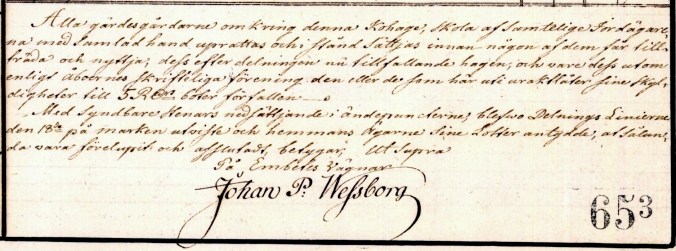 Alla gärdesgårdarne omkring denna Kohage, skola af samtelige Jordägare,
na med samlad hand uprättas och i stånd sättjas innan någon af dem får till,
träda och nyttja, dess efter delningen nu tillfallande hagen, och vare dess utom
enligt åboernes skriftteliga förening den eller de som här uti uraktlåter sine skyl,
digheter till 5 RD böter förfallen
Med Syndbare Stenars nedsättjande i ändpuncterne, blefwo Delnings Linierne
den 18de på marken utviste och hemmans Ägarne sine Lotter antydde, at sålun,
da vara förelupit och afslutadt, betygar, Ut Supra
På Embetes Vägnar
Johan P: Wessborg
653